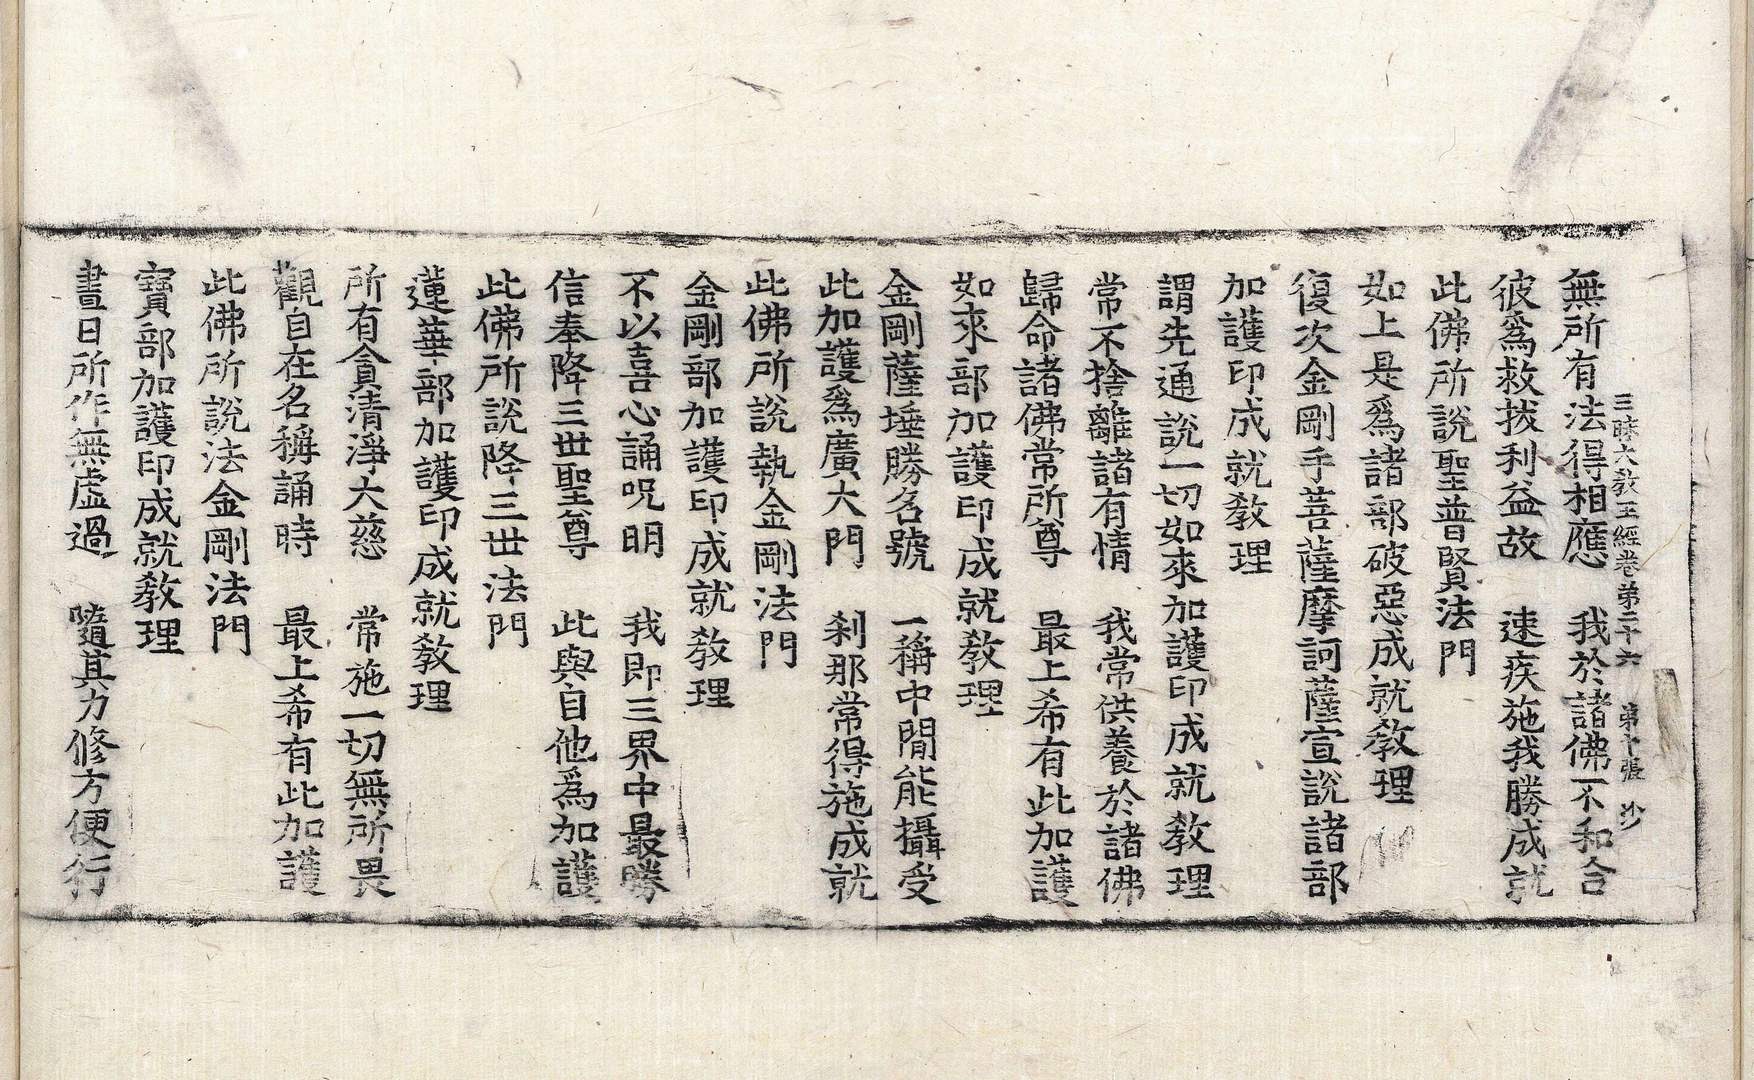 三昧大教王經卷第二十六　第十張　沙
無所有法得相應　我於諸佛不和合
彼爲救拔利益故　速疾施我勝成就
此佛所說聖普賢法門
如上是爲諸部破惡成就敎理
復次金剛手菩薩摩訶薩宣說諸部
加護印成就敎理
謂先通說一切如來加護印成就敎理
常不捨離諸有情　我常供養於諸佛
歸命諸佛常所尊　最上希有此加護
如來部加護印成就敎理
金剛薩埵勝名號　一稱中間能攝受
此加護爲廣大門　刹那常得施成就
此佛所說執金剛法門
金剛部加護印成就敎理
不以喜心誦呪明　我即三界中最勝
信奉降三世聖尊　此與自他爲加護
此佛所說降三世法門
蓮華部加護印成就敎理
所有貪清淨大慈　常施一切無所畏
觀自在名稱誦時　最上希有此加護
此佛所說法金剛法門
寶部加護印成就敎理
晝日所作無虛過　隨其力修方便行